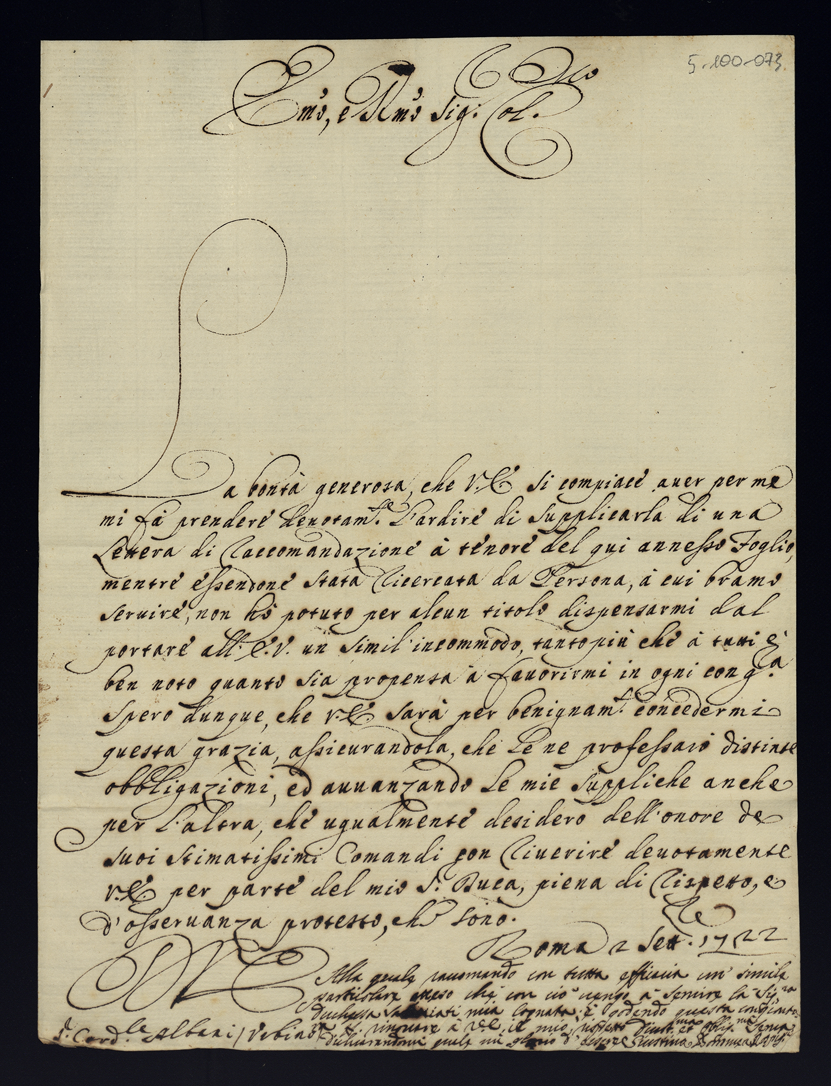 5-100-073
Em̃o, e R̃mo Sig: Col.mo
La bontà generosa, che V.E. si compiace auer per me
mi fà prendere deuotam.te l'ardire di supplicarla di una
Lettera di Raccomandazione à tenore del qui annesso Foglio,
mentre essendone stata Ricercata da Persona, à cui bramo
seruire, non hò potuto per alcun titolo dispensarmi dal
portare all'E.V. un simil'incommodo, tanto più che à tutti è
ben noto quanto sia propensa à fauorirmi in ogni cong.ra
Spero dunque, che V.E. sarà per benignam.te concedermi
questa grazia, assicurandola, che Le ne professarò distinte
obbligazioni, ed auuanzando le mie suppliche anche
per l'altra, che ugualmente desidero dell'onore de
suoi stimatissimi Comandi con Riuerire deuotamente
V.E. per parte del mio S. Duca, piena di Rispetto, e
d'osseruanza protesto, che sono.
Roma 2 Sett. 1722
Alla quale raccomando con tutta efficacia un simile
particolare che con ciò vengo à seruire la Sig.ra
Duchessa Saluiati mia Cognata, è
S. Card.le Albani / Vrbin